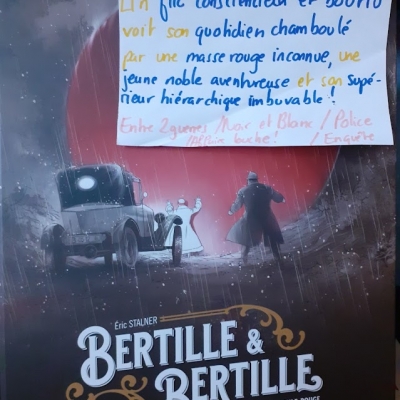 Un flic consciencieux et bourru
voit son quotidien chamboulé
par une masse rouge inconnue, une
jeune noble aventureuse et son supé-
rieur hiérarchique imbuvable !
Entre 2 guerres / Noir et Blanc / Police
/ Affaire louche ! / Enquête
Éric STALNER
BERTILLE &
BERTILLE
ROUGE